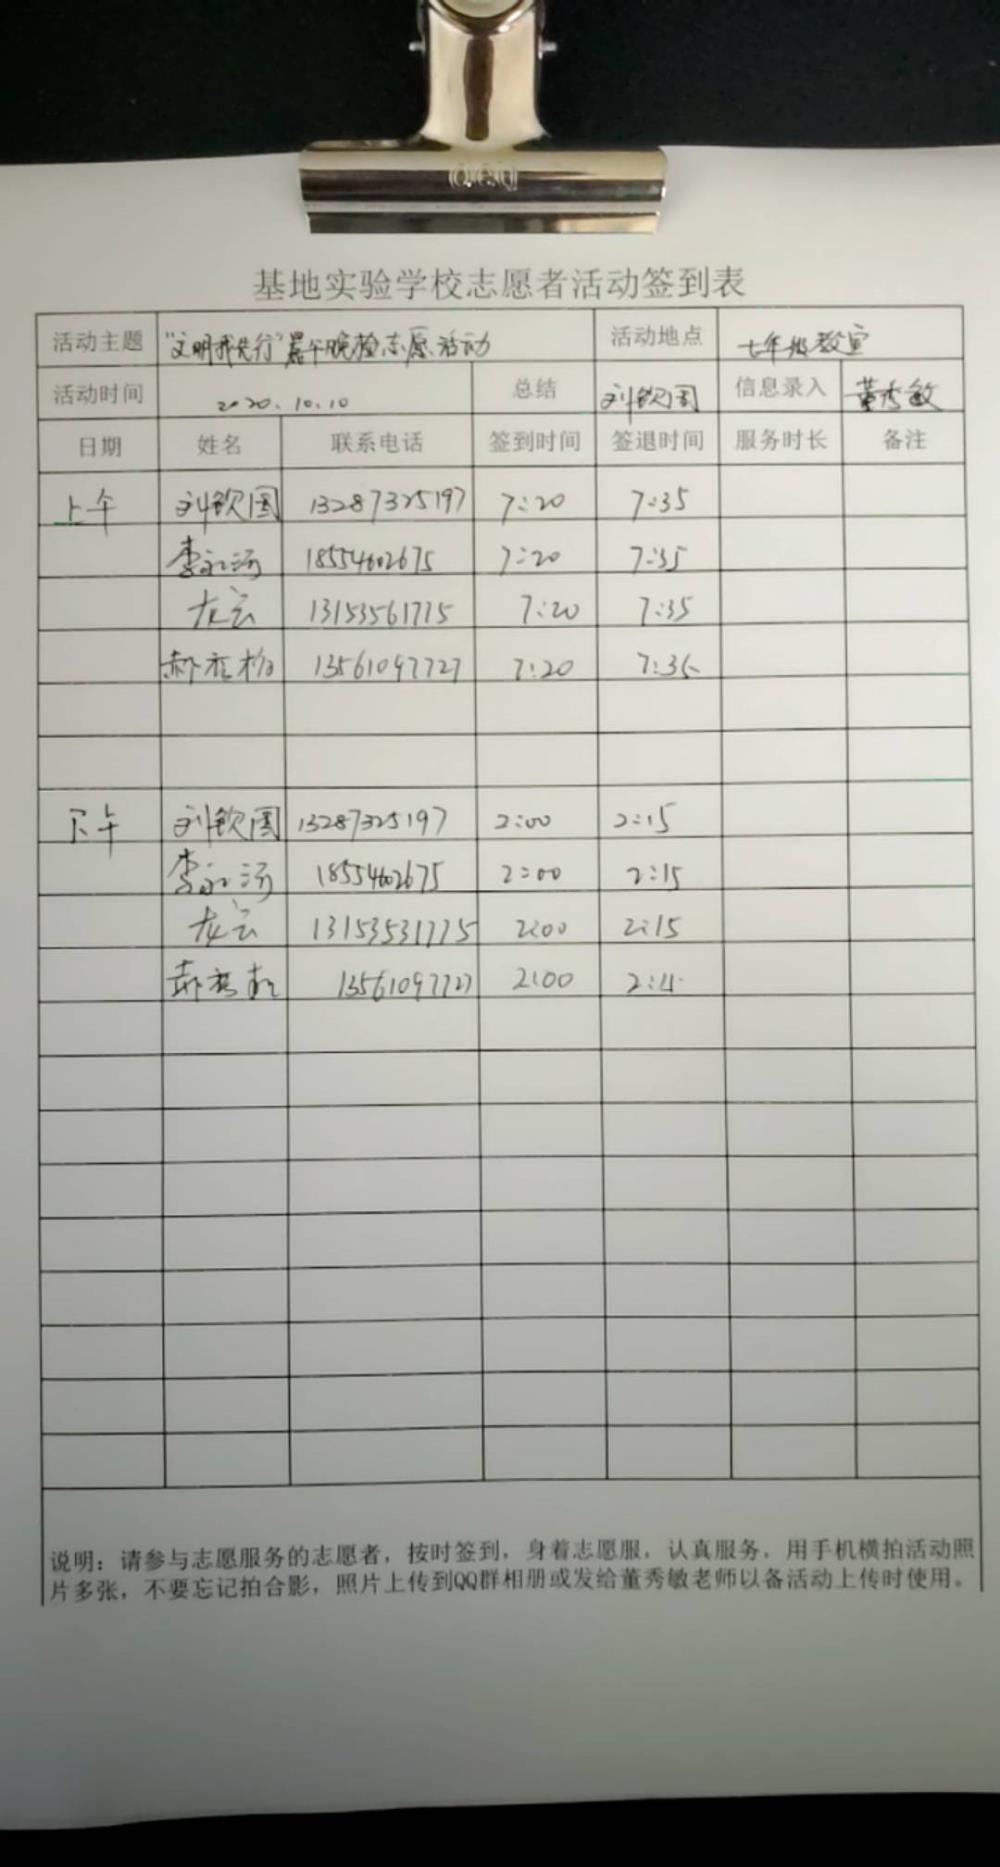 基地实验学校志愿者活动签到表
活动主题 "文明我先行"晨午晚检志愿活动 活动地点 七年级教室
活动时间 2020.10.10 总结 刘钦国 信息录入 董秀敏
日期 姓名 联系电话 签到时间 签退时间 服务时长 备注
上午 刘钦国 13287325197 7:20 7:35
李 18554602675 7:20 7:35
龙云 13153561715 7:20 7:35
郝 13561097727 7:20 7:35
下午 刘钦国 13287325197 2:00 2:15
李 18554602675 2:00 2:15
龙云 13153531775 2:00 2:15
郝 13561097727 2:00
说明：请参与志愿服务的志愿者，按时签到，身着志愿服，认真服务，用手机横拍活动照
片多张，不要忘记拍合影，照片上传到QQ群相册或发给董秀敏老师以备活动上传时使用。